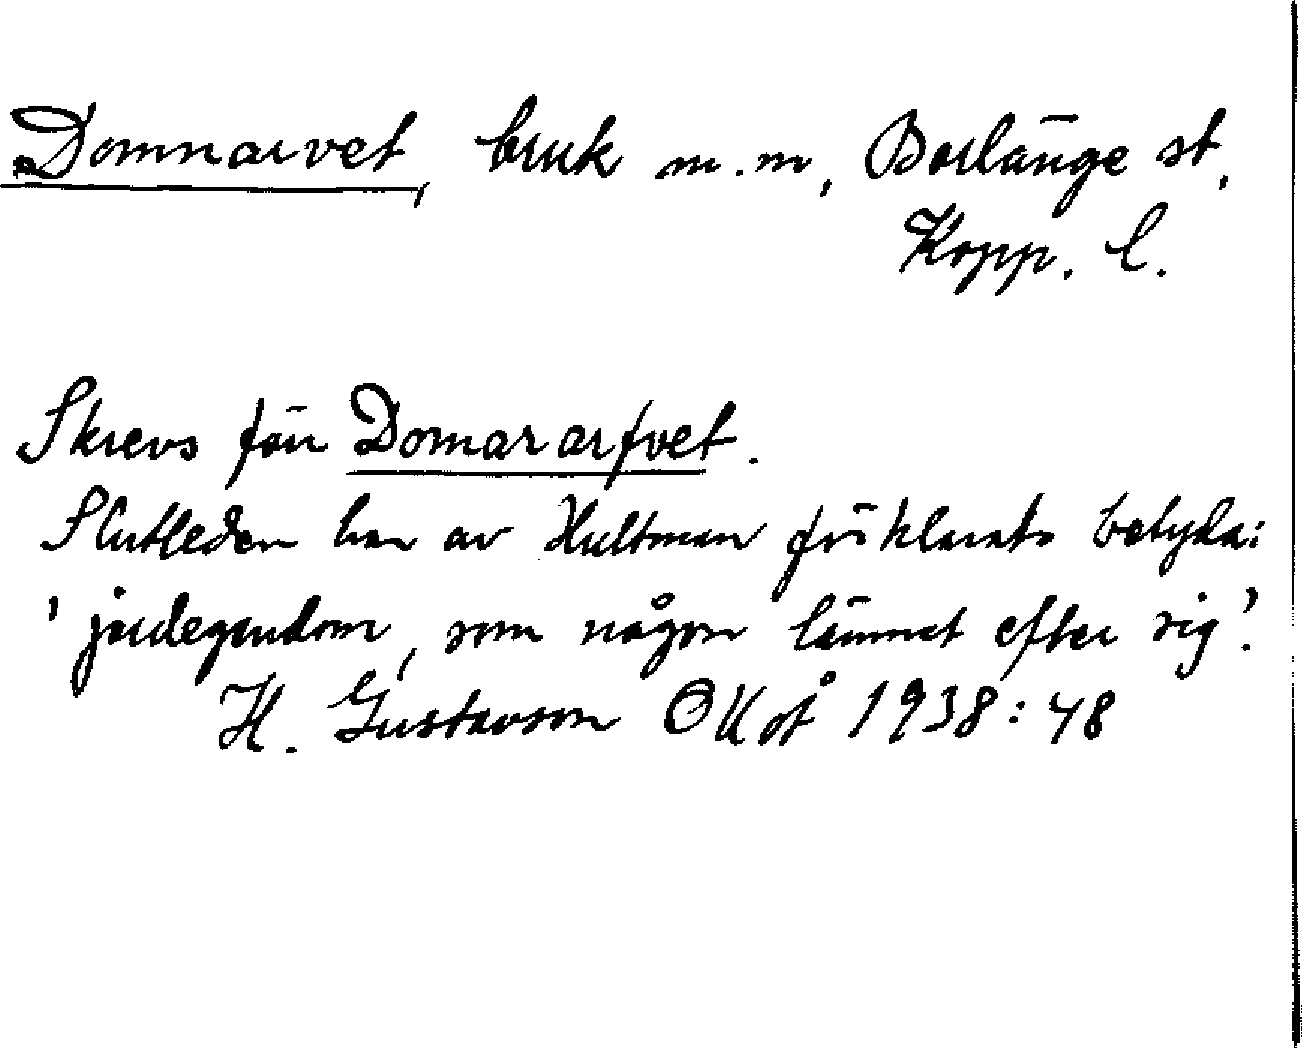 Domnarvet, bruk m.m, Borlänge st,
Kopp. l.
Skrevs förr Domararfvet.
Slutleden har av Hultman förklarats betyda:
'jordegendom, som någon lämnat efter sig'.
H. Gustavson OUÅ 1938:48